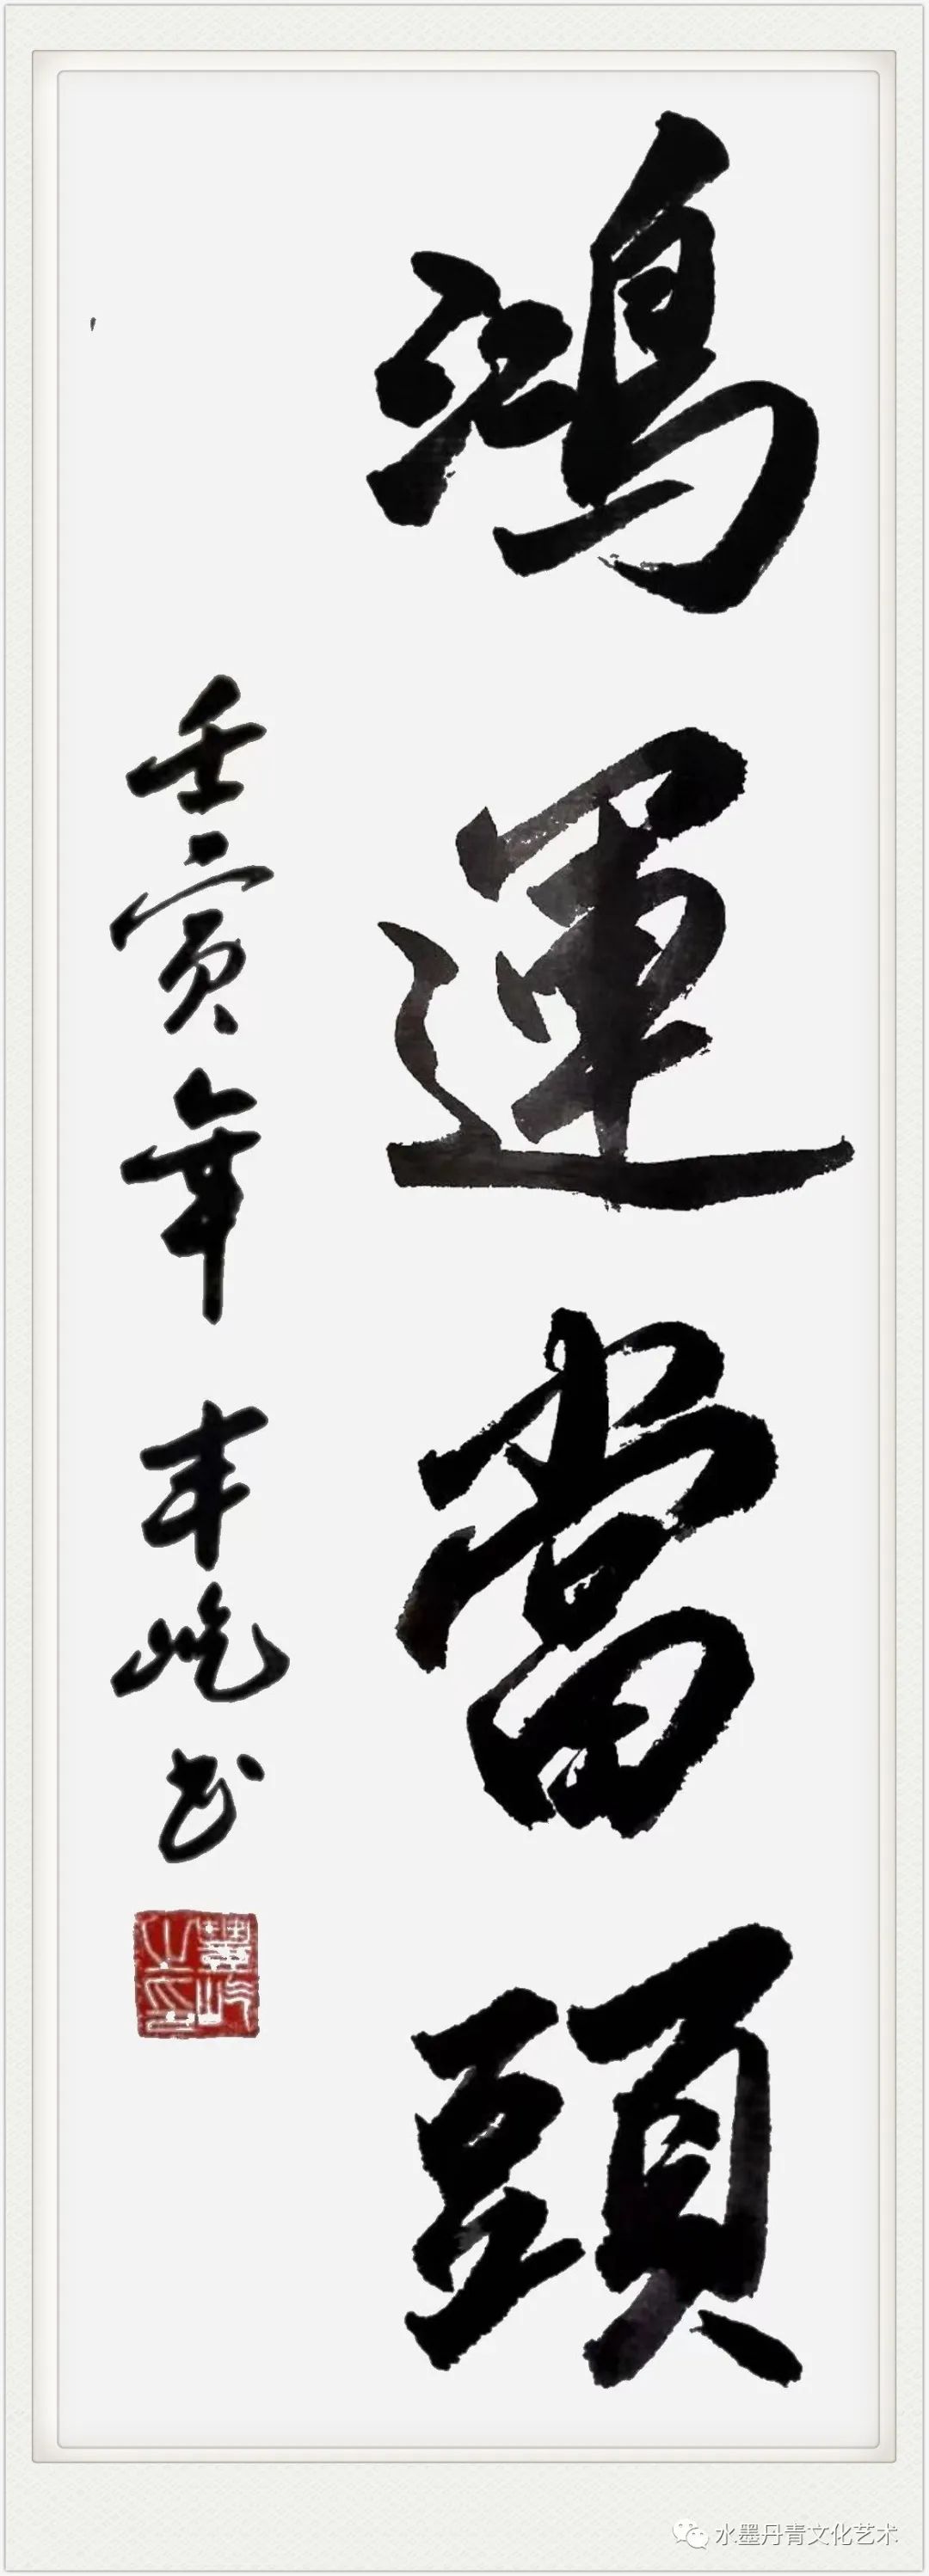 鴻運當頭
壬寅年 丰屹书
水墨丹青文化艺术